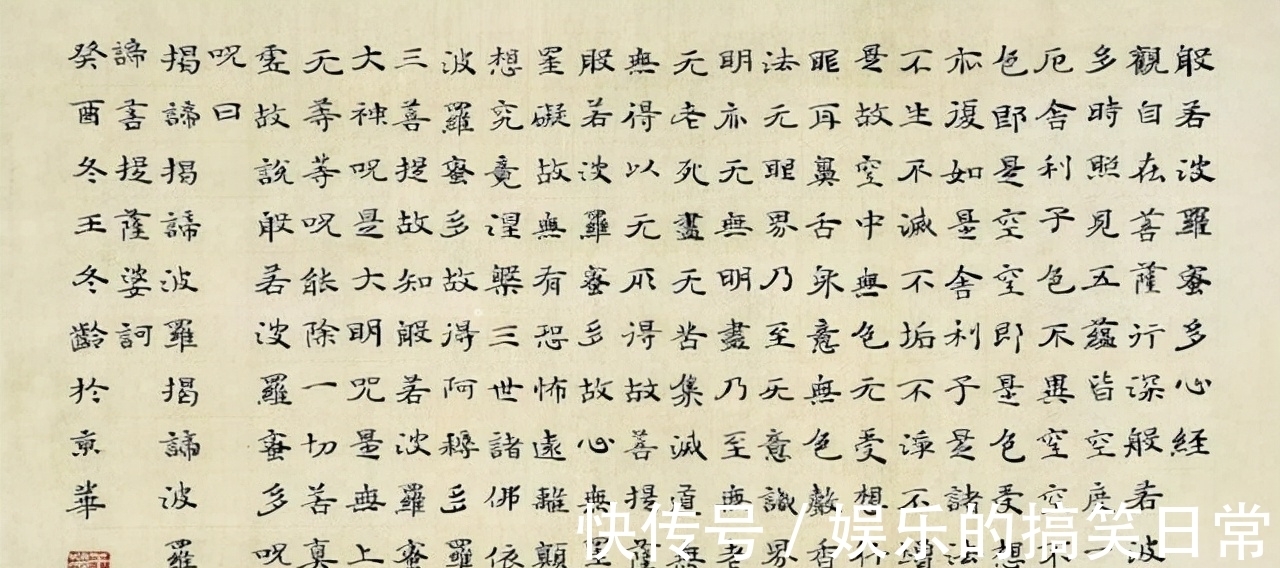 般若波羅蜜多心經
觀自在菩薩行深般若波
多時照見五蘊皆空度一
厄舍利子色不異空空不
色即是空空即是色受想
亦復如是舍利子是諸法
不生不滅不垢不淨不增
是故空中無色无受想行
眼耳鼻舌身意無色聲香
法无眼界乃至无意識界
明亦无無明盡乃至無老
无老死盡无苦集滅道無
無得以无所得故菩提薩
般若波羅蜜多故心無罣
罣礙故無有恐怖遠離顛
想究竟涅槃三世諸佛依
波羅蜜多故得阿耨多羅
三菩提故知般若波羅蜜
大神呪是大明呪是無上
无等等呪能除一切苦真
虛故說般若波羅蜜多呪
呪曰
揭諦揭諦波羅揭諦波羅
諦菩提薩婆訶
癸酉冬王冬齡於京華
快传号/娱乐的搞笑日常